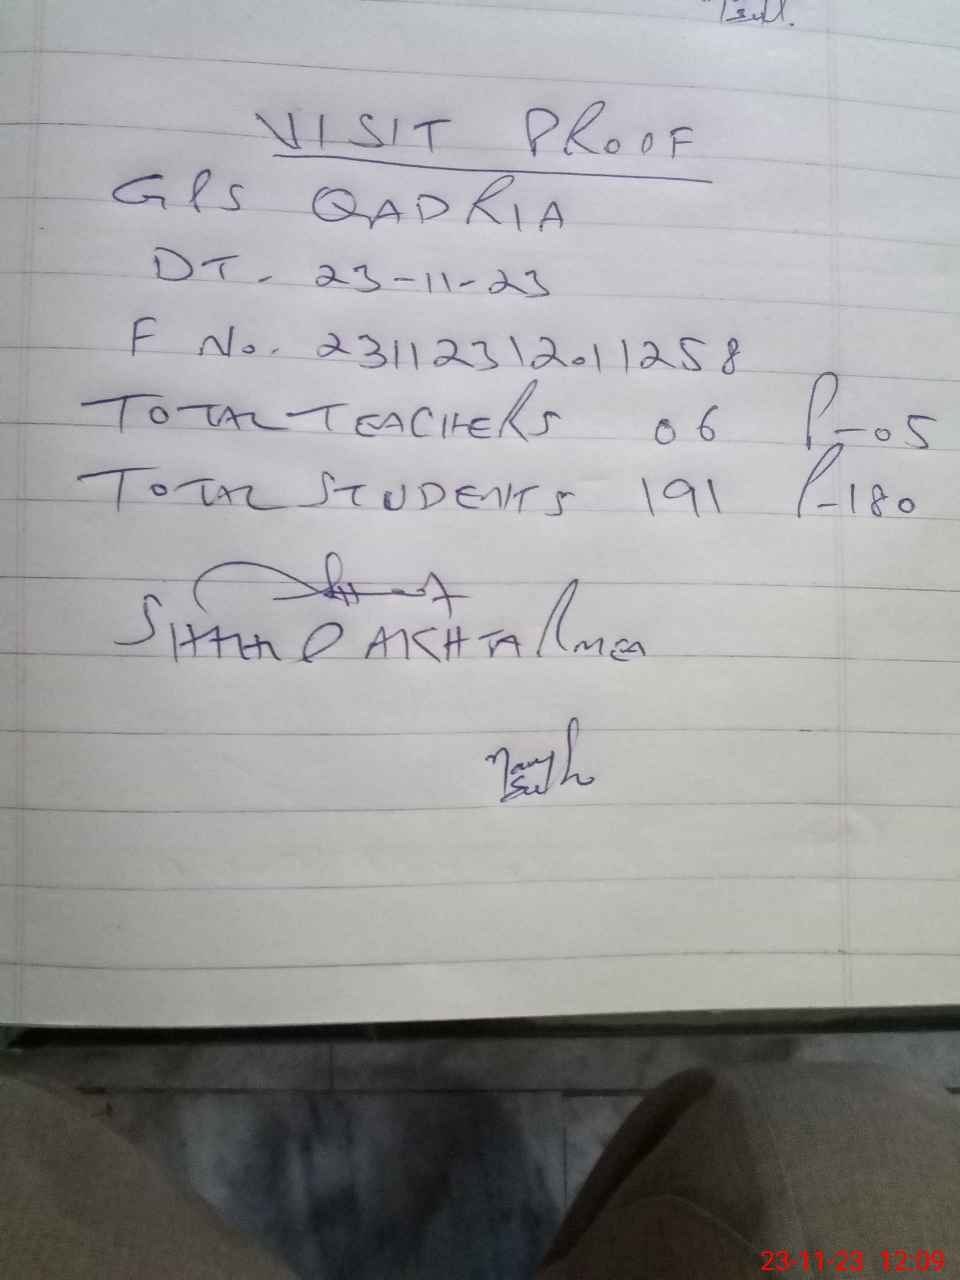 VISIT PROOF
GPS QADRIA
DT. 23-11-23
F No. 23112312011258
TOTAL TEACHERS 06 P-05
TOTAL STUDENTS 191 P-180
AKHTAR MEA
23-11-23 12:09